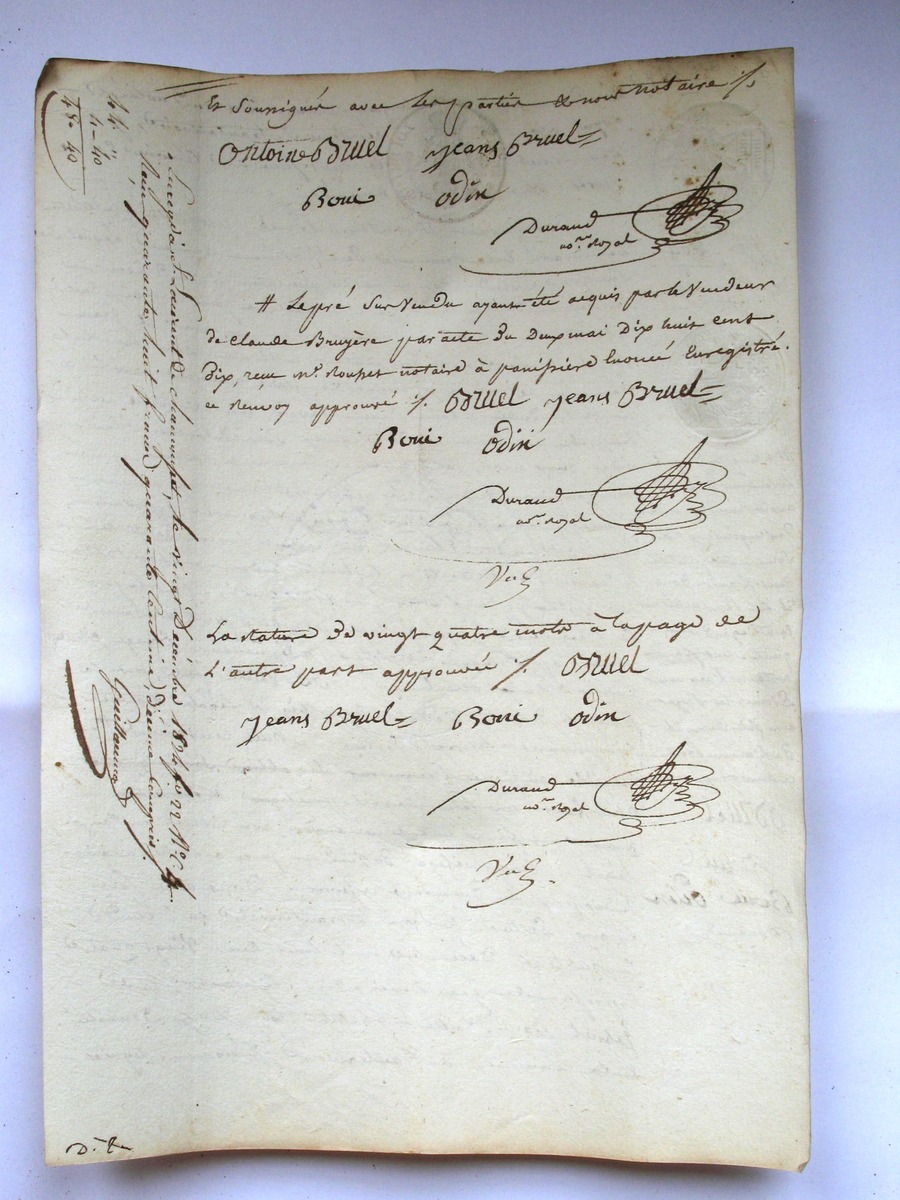 Et Soussignés avec les parties & nous notaire ./.
Antoine Bruel Jeans Bruel
Boui Odin
Durand
no.re Royal
# Le pré Sus Vendu ayant été acquis par le Vendeur
de Claude Bruyère par acte du Deux mai Dix huit cent
Dix, reçu m.e Rouher notaire à Enoncé Enregistré.
ce Renvoy approuvé ./. Bruel Jeans Bruel
Boui Odin
Durand
no.re Royal
La Rature de vingt quatre mots à la page de
L'autre part approuvée ./. Bruel
Jeans Bruel Boui Odin
Durand
no.re Royal
Enregt à St Laurent de chamousset, le vingt Décembre 1824 fo 22 Ro C.
Reçu quarante huit francs quarante centimes, dixième compris ./.
Guillaume
44"
4-40
48-40